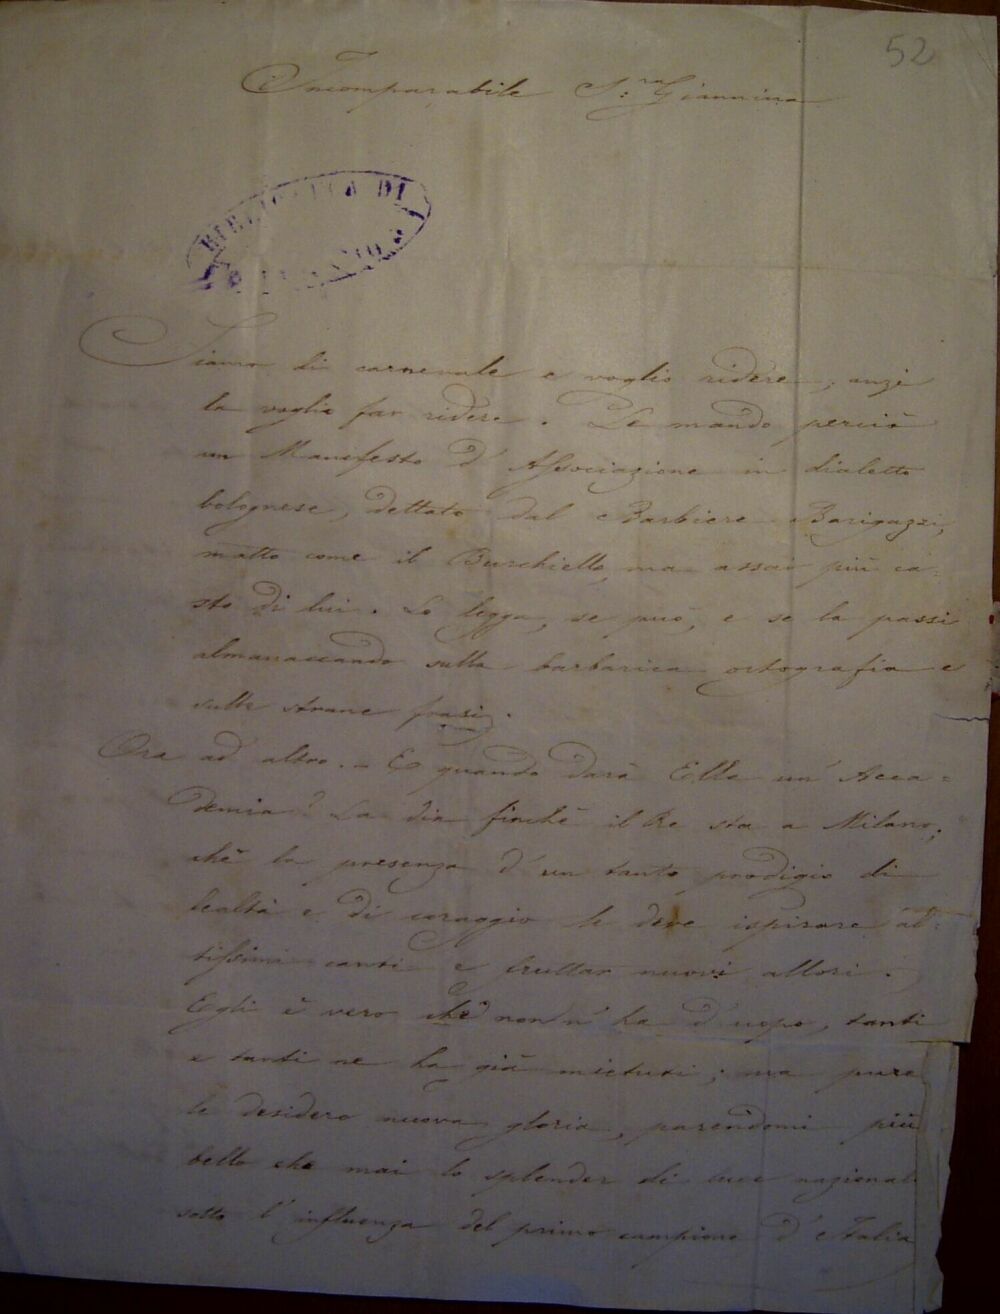 52
Incomparabile S:ra Giannina
BIBLIOTECA DI
Siamo di carnevale e voglio ridere, anzi
la voglio far ridere. Le mando perciò
un Manifesto d'Associazione in dialetto
bolognese, dettato dal Barbiere Barigazzi,
matto come il Burchiello, ma assai più ca=
sto di lui. Lo legga, se può, e se la passi
almanaccando sulla barbarica ortografia e
sulle strane frasi.
Ora ad altro. - E quando darà Ella un' Acca=
demia? La dia finchè il Re sta a Milano,
chè la presenza d'un tanto prodigio di
lealtà e di coraggio le deve ispirare al=
tissimi canti e fruttar nuovi allori.
Egli è vero che non n'ha d'uopo, tanti
e tanti ne ha già mietuti; ma pure
le desidero nuova gloria, parendomi più
bello che mai lo splender di luce nazional
sotto l'influenza del primo campione d'Italia